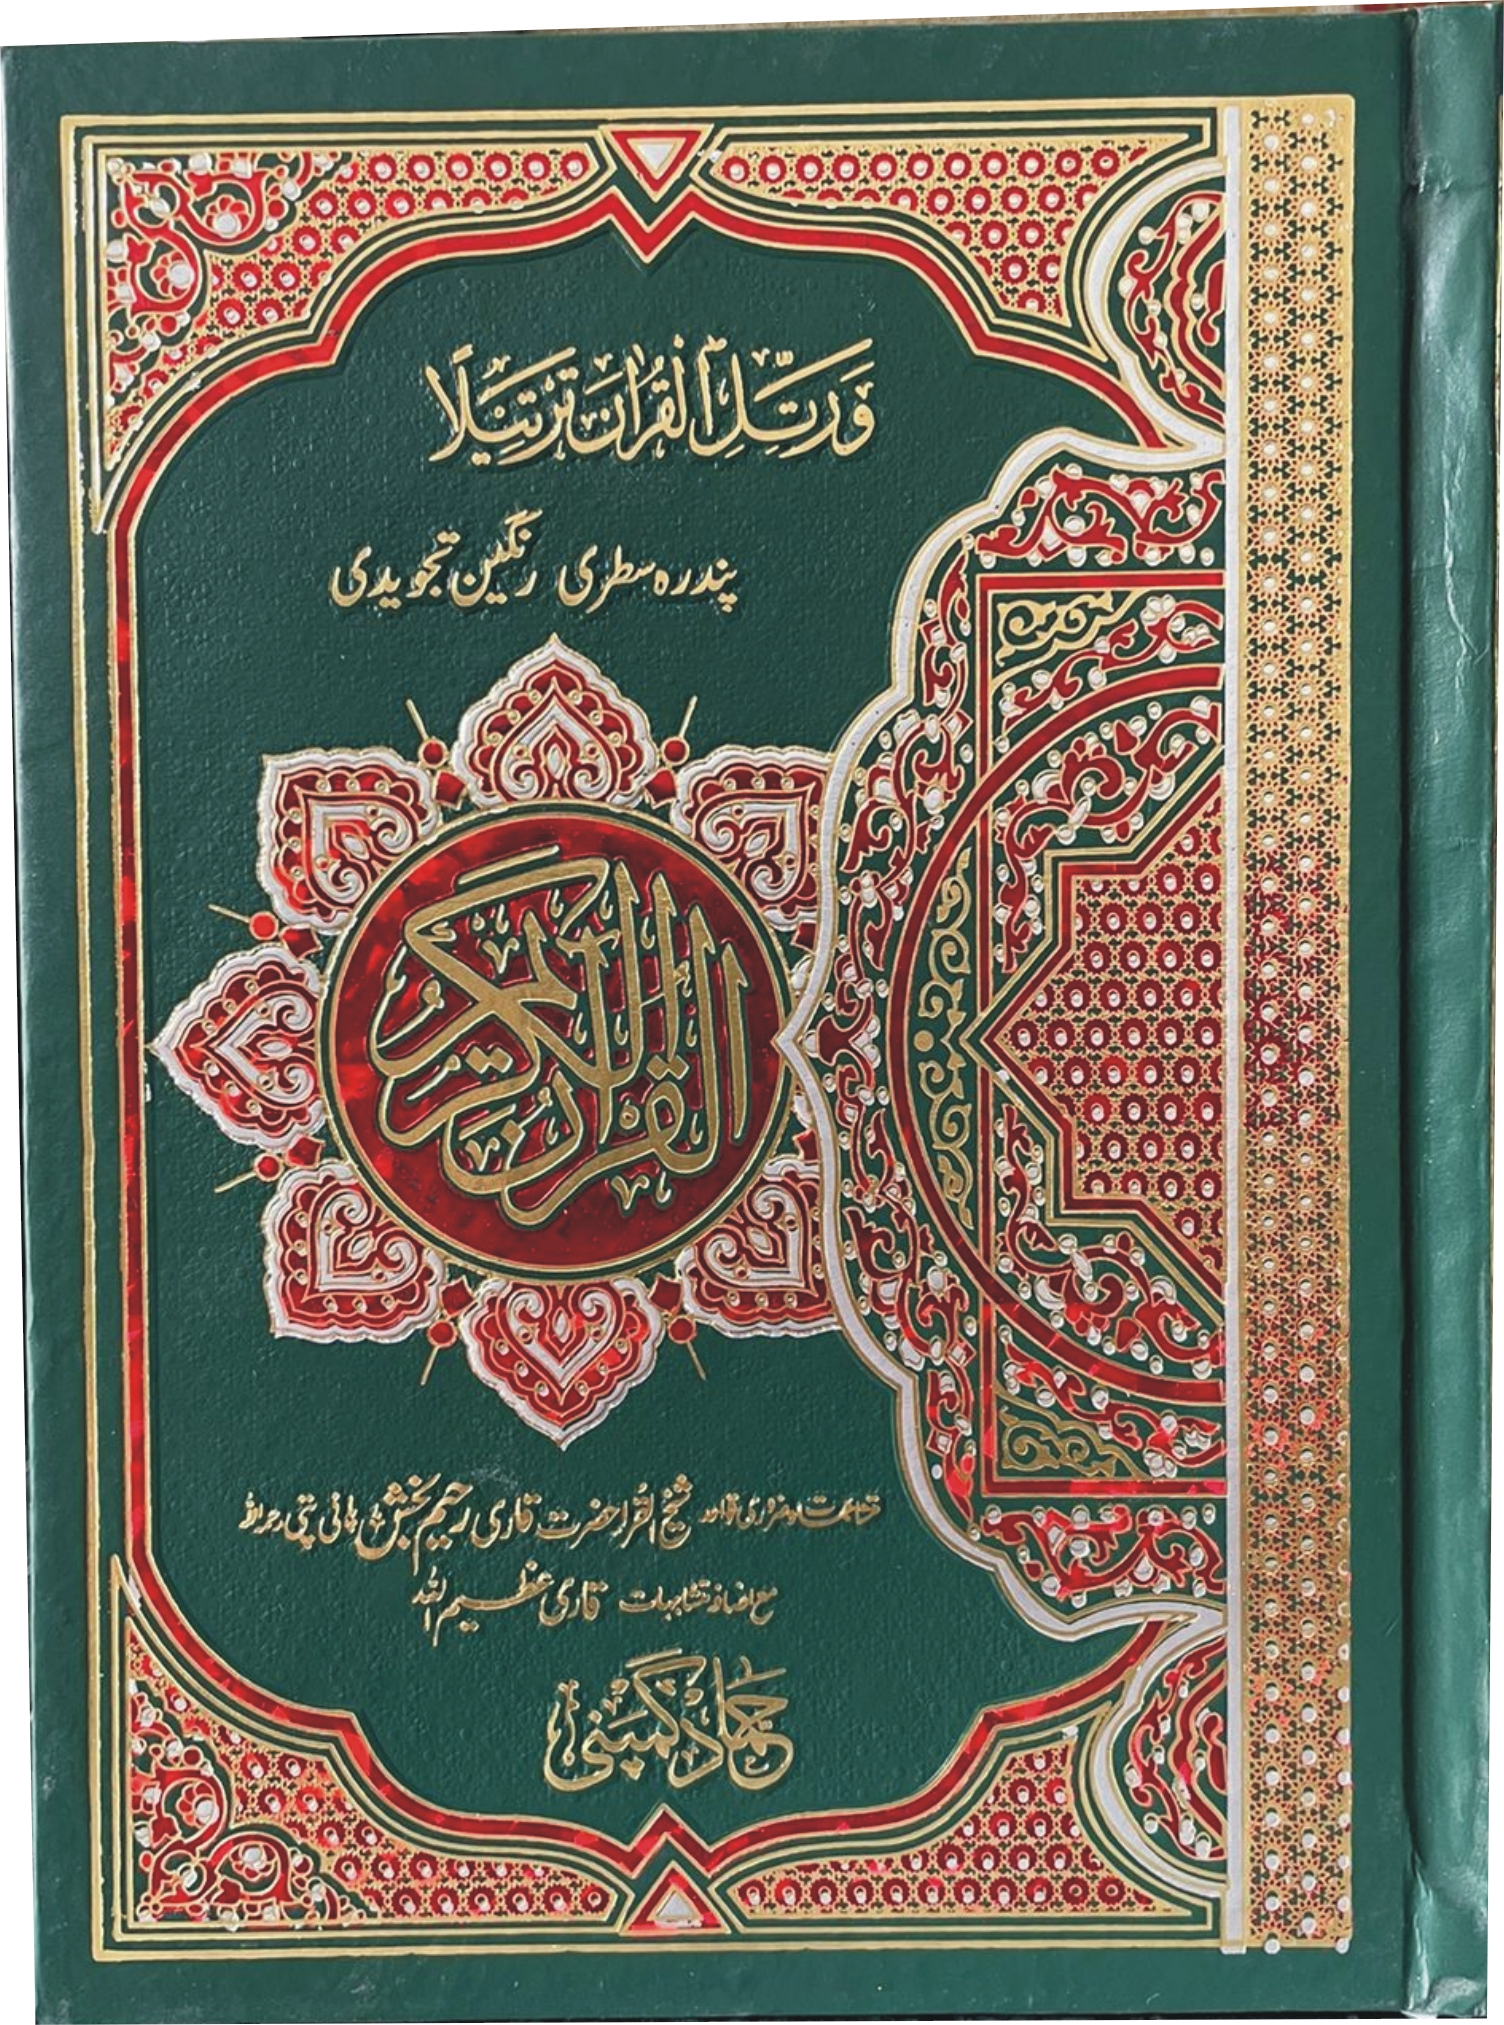 وَرَتِّلِ الْقُرْاٰنَ تَرْتِيْلًا
پندرہ سطری رنگین تجویدی
القرآن الكريم
متشابہات و ضروری قواعد شیخ القراء حضرت قاری رحیم بخش پانی پتی رحمہ اللہ
مع اضافہ متشابہات قاری عظیم اللہ
حماد کمپنی